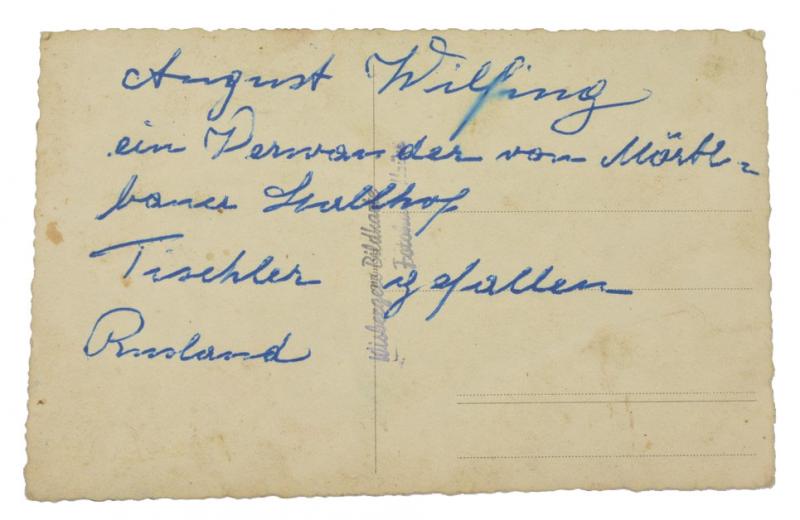 August Wilfing
ein Verwander vom Mörtl-
bauer Stallhof
Tischler gefallen
Rusland